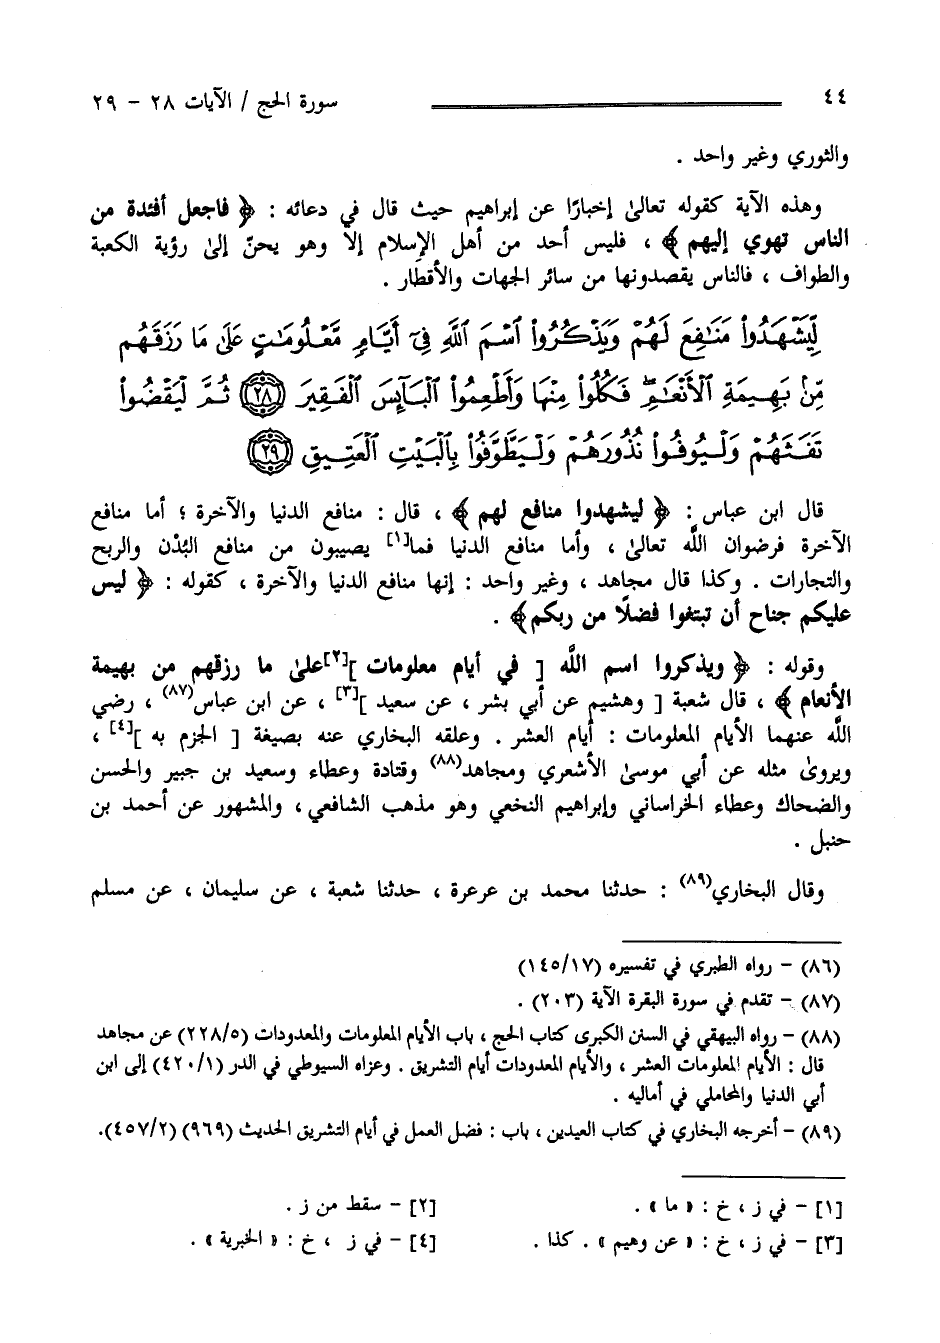 ٤٤ سورة الحج / الآيات ٢٨ - ٢٩
والثوري وغير واحد .
وهذه الآية كقوله تعالىٰ إخبارًا عن إبراهيم حيث قال في دعائه : ﴿ فاجعل أفئدة من
الناس تهوي إليهم ﴾ ، فليس أحد من أهل الإسلام إلا وهو يحنّ إلىٰ رؤية الكعبة
والطواف ، فالناس يقصدونها من سائر الجهات والأقطار .
لِّيَشْهَدُوا۟ مَنَٰفِعَ لَهُمْ وَيَذْكُرُوا۟ ٱسْمَ ٱللَّهِ فِىٓ أَيَّامٍ مَّعْلُومَٰتٍ عَلَىٰ مَا رَزَقَهُم
مِّنۢ بَهِيمَةِ ٱلْأَنْعَٰمِ ۖ فَكُلُوا۟ مِنْهَا وَأَطْعِمُوا۟ ٱلْبَآئِسَ ٱلْفَقِيرَ ﴿٢٨﴾ ثُمَّ لْيَقْضُوا۟
تَفَثَهُمْ وَلْيُوفُوا۟ نُذُورَهُمْ وَلْيَطَّوَّفُوا۟ بِٱلْبَيْتِ ٱلْعَتِيقِ ﴿٢٩﴾
قال ابن عباس : ﴿ ليشهدوا منافع لهم ﴾ ، قال : منافع الدنيا والآخرة ؛ أما منافع
الآخرة فرضوان اللَّه تعالىٰ ، وأما منافع الدنيا فما[١] يصيبون من منافع البُدْن والربح
والتجارات . وكذا قال مجاهد ، وغير واحد : إنها منافع الدنيا والآخرة ، كقوله : ﴿ ليس
عليكم جناح أن تبتغوا فضلًا من ربكم ﴾ .
وقوله : ﴿ ويذكروا اسم اللَّه [ في أيام معلومات ][٢]علىٰ ما رزقهم من بهيمة
الأنعام ﴾ ، قال شعبة [ وهشيم عن أبي بشر ، عن سعيد ][٣] ، عن ابن عباس(٨٧) ، رضي
اللَّه عنهما الأيام المعلومات : أيام العشر . وعلقه البخاري عنه بصيغة [ الجزم به ][٤] ،
ويروىٰ مثله عن أبي موسىٰ الأشعري ومجاهد(٨٨) وقتادة وعطاء وسعيد بن جبير والحسن
والضحاك وعطاء الخراساني وإبراهيم النخعي وهو مذهب الشافعي، والمشهور عن أحمد بن
حنبل .
وقال البخاري(٨٩) : حدثنا محمد بن عرعرة ، حدثنا شعبة ، عن سليمان ، عن مسلم
(٨٦) - رواه الطبري في تفسيره (١٤٥/١٧)
(٨٧) - تقدم في سورة البقرة الآية (٢٠٣) .
(٨٨) - رواه البيهقي في السنن الكبرى كتاب الحج ، باب الأيام المعلومات والمعدودات (٢٢٨/٥) عن مجاهد
قال : الأيام المعلومات العشر ، والأيام المعدودات أيام التشريق . وعزاه السيوطي في الدر (٤٢٠/١) إلى ابن
أبي الدنيا والمحاملي في أماليه .
(٨٩) - أخرجه البخاري في كتاب العيدين ، باب : فضل العمل في أيام التشريق الحديث (٩٦٩) (٤٥٧/٢).
[١] - في ز ، خ : « ما » . [٢] - سقط من ز .
[٣] - في ز ، خ : « عن وهيم » . كذا . [٤] - في ز ، خ : « الخبرية » .